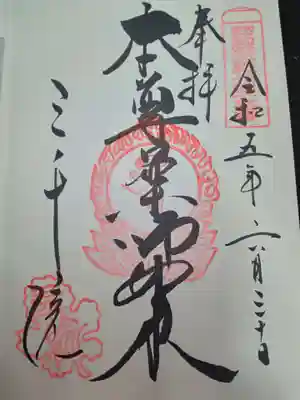 令和五年六月三十日
奉拝
本尊薬師如来
三千院